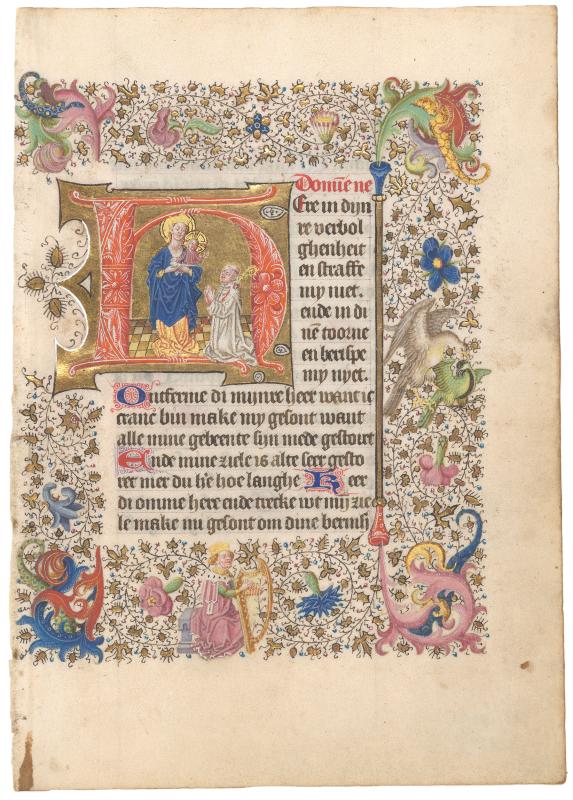 Domīe ne
HEre in dijn
re verbol
ghenheit
en straffe
my niet.
ende in di
nē toorne
en berispe
my nyet.
Ontferme di mijnre heer want ic
cranc bin make my gesont want
alle mine gebeente sijn mede gestoirt
Ende mine ziele is alte seer gesto
ret mer du hē hoe langhe Keer
di omme here ende trecke wt mij zie
le make mi gesont om dine bermh